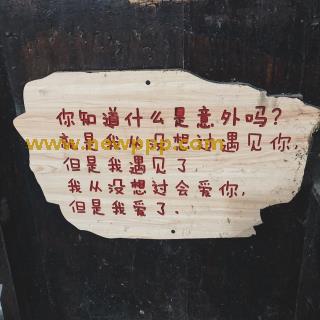 你知道什么是意外吗？
就是我从没想过遇见你，
www.newppp.com
但是我遇见了，
我从没想过会爱你，
但是我爱了．